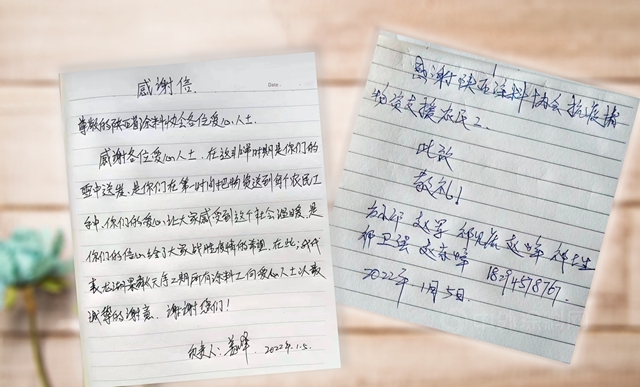 感谢信.
Date:
尊敬的陕西省涂料协会各位爱心人士.
感谢各位爱心人士.在这非常时期是你们的
雪中送炭.是你们在第一时间把物资送到每个农民工
手中.你们的爱心.让大家感受到这个社会温暖.是
你们的信心给了大家战胜疫情的希望.在此:我代
表龙湖景粼天序工期所有涂料工向爱心人士以最
诚挚的谢意.谢谢您们!
负责人: 2022年.1.5.
感谢陕西涂料协会抗疫情
物资支援农民工.
此致
敬礼!
赵军 赵峰
卫强 赵 峰 18294578767.
2022年1月5日.